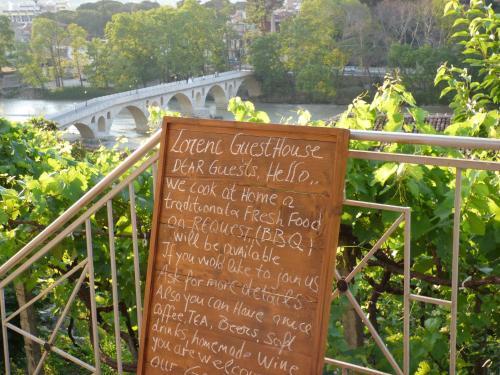 Lorenc GuestHouse
DEAR Guests, Hello..
we Cook at Home a
traditionata Fresh Food
on REQUEST (BBQ)
will be available
If you would like to join us
Ask for more details
Also you can Have a nice
coffee TEA, Beers, soft
drinks, homemade Wine
you are welcome
our